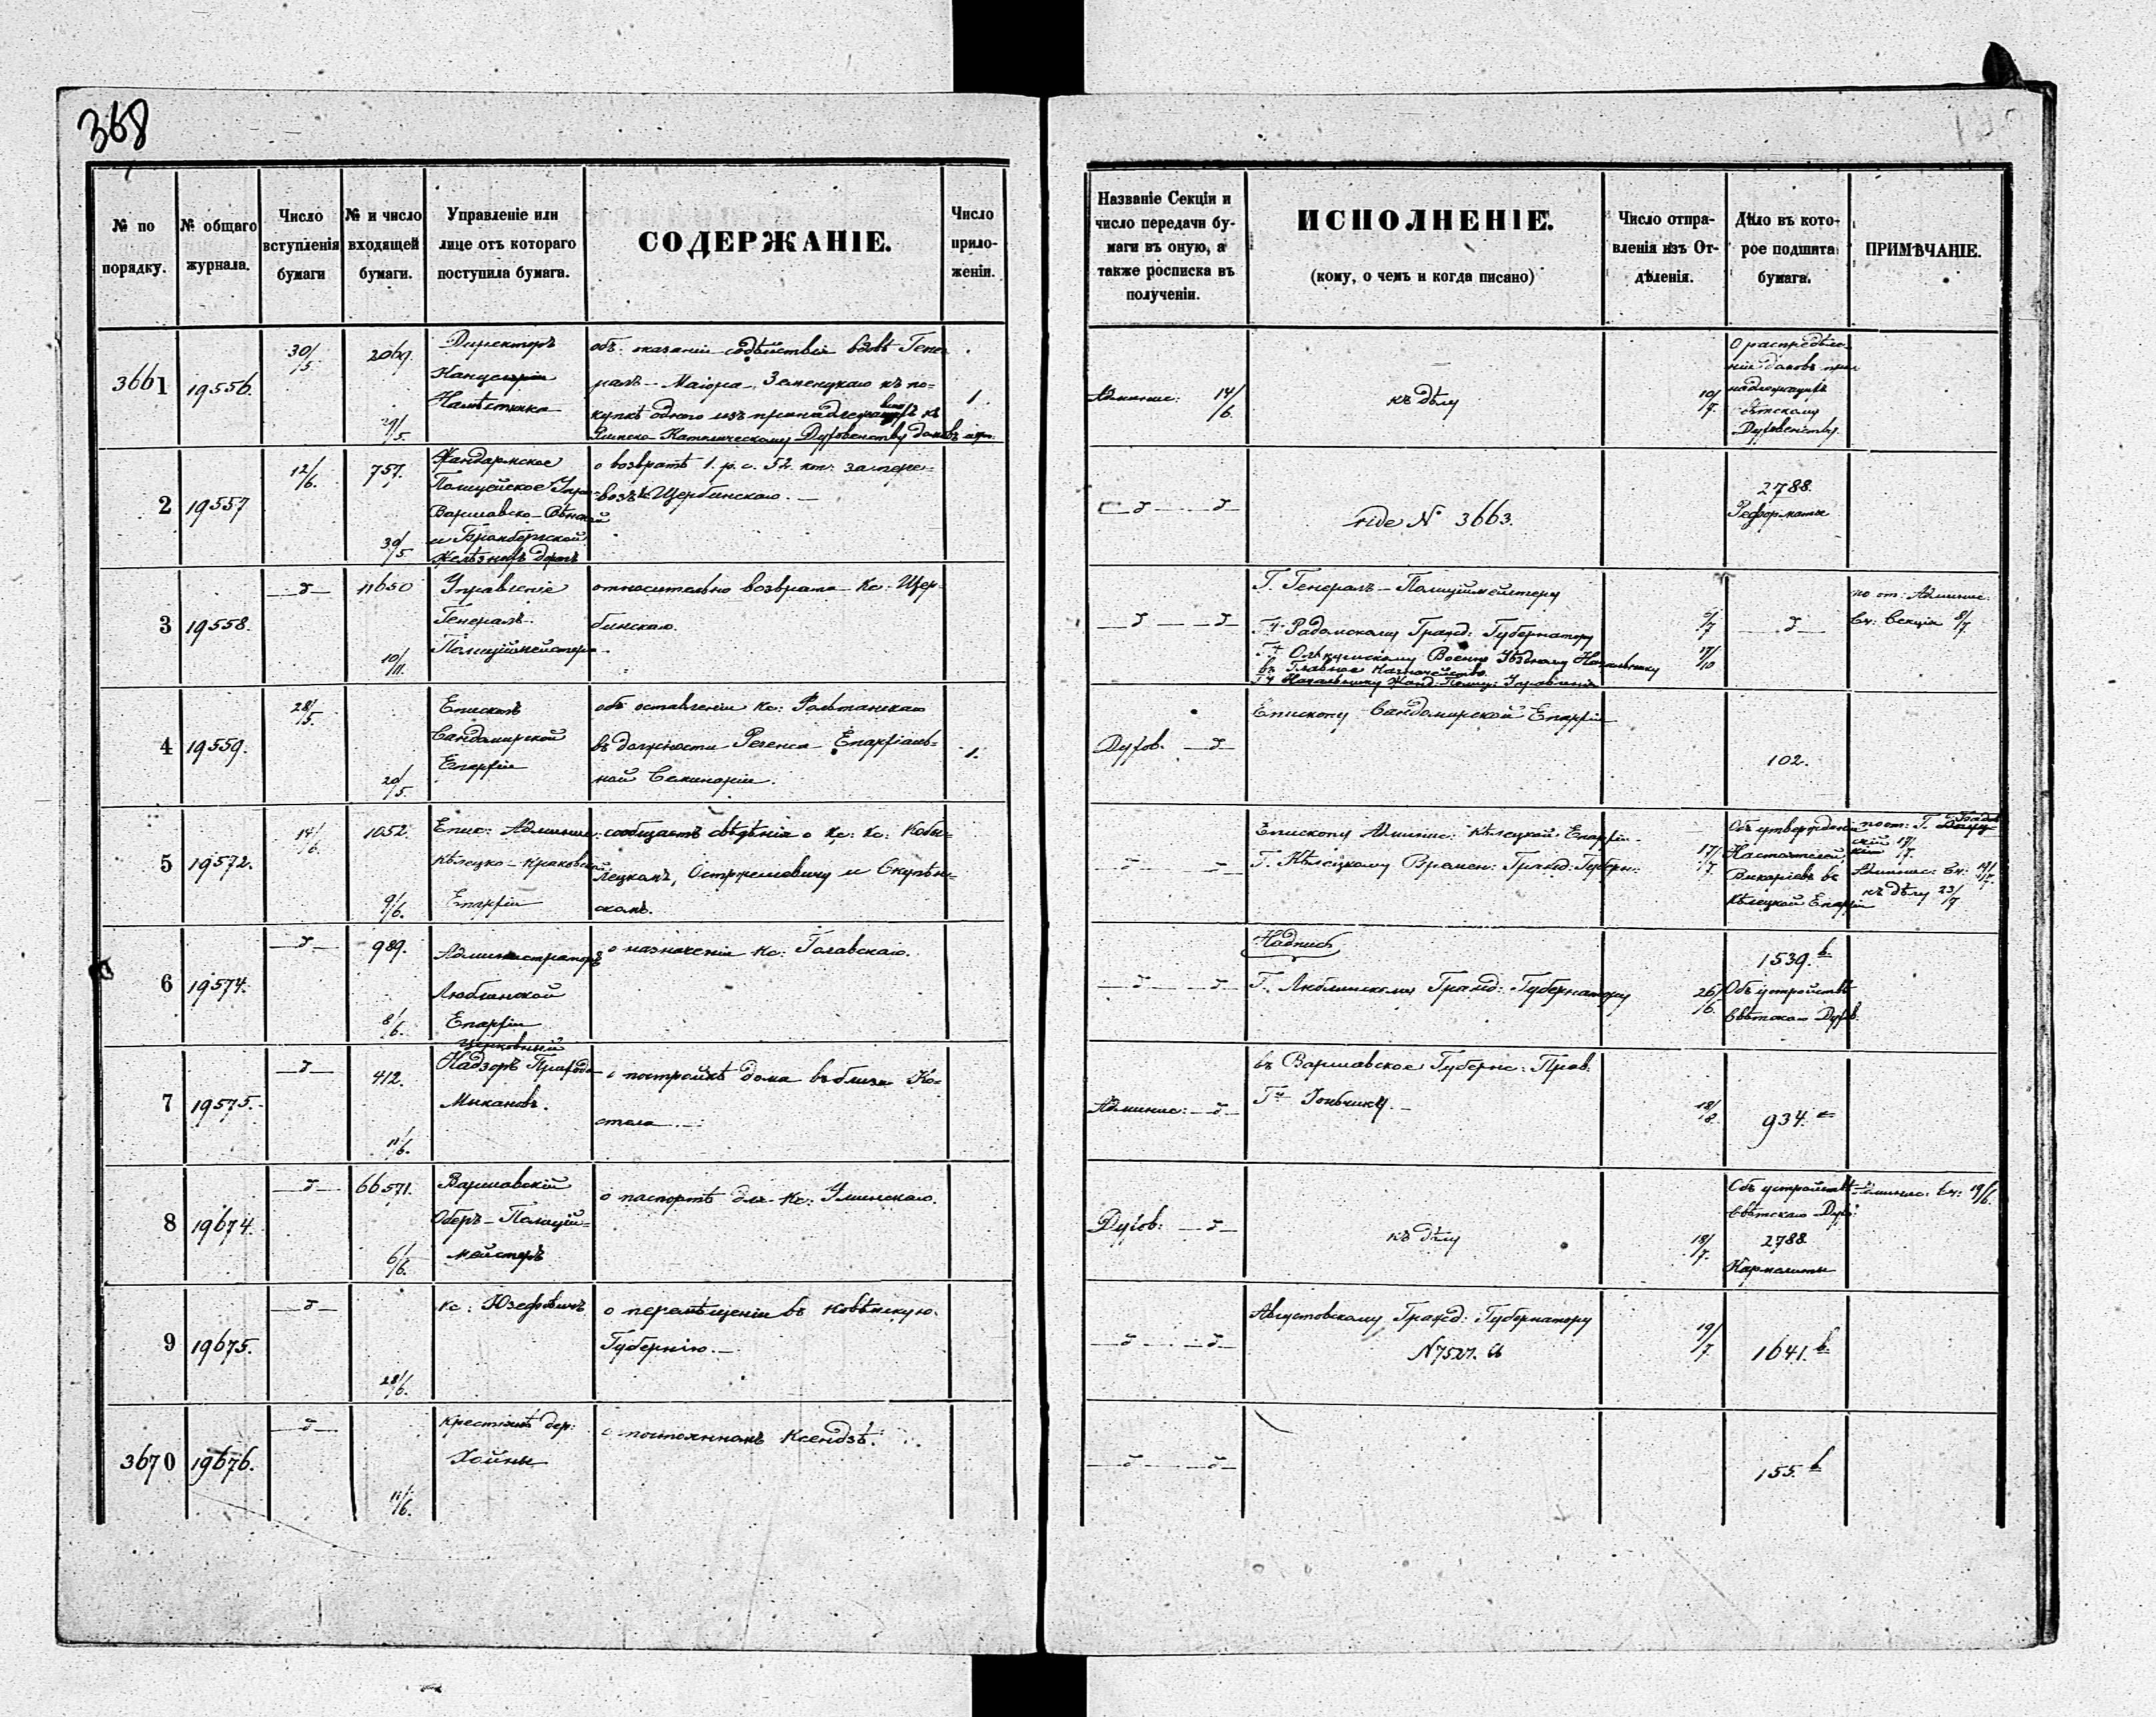 368
№ по порядку.
№ общаго журнала.
Число вступленія бумаги
№ и число входящей бумаги.
Управленіе или лице отъ котораго поступила бумага.
СОДЕРЖАНІЕ.
Число приложеній.
Названіе Секціи и число передачи бумаги въ оную, а также росписка въ полученіи.
ИСПОЛНЕНІЕ.
(кому, о чемъ и когда писано)
Число отправленія изъ Отдѣленія.
Дѣло въ которое подшита бумага.
ПРИМѢЧАНІЕ.
3661
19556.
30/5
2069
29/5.
Директоръ
Канцеляріи
Намѣстника
объ оказаніи содѣйствія вдовѣ Гене-
ралъ-Маіора
купкѣ одного изъ принадлежащихъ къ
Римско-Католическому Духовенству домовъ
1.
Админис: 14/6.
къ дѣлу
10/7.
О распредѣле-
ніи домовъ при
надлежащихъ
свѣтскому
Духовенству.
2
19557
12/6.
757.
30/5.
Жандармское
Полицейское Упр
Варшавско-Вѣнской
и Бромбергской
желѣзныхъ дорогъ
о возвратѣ 1. р. с. 52. коп: за пере-
возъ Кс Щербинскаго. —
— д — д —
vide № 3663.
2788.
Реформаты
3
19558.
— д —
11650
10/11.
Управленіе
Генералъ-
Полиціймейстера
относительно возврата Кс. Щер-
бинскаго.
— д — д —
Г. Генералъ-Полиціймейстеру
Гну Радомскому Гражд: Губернатору
Гну Олькушскому Военно Уѣздному Начальнику
въ Главное Казначейство.
Гну Начальнику Жанд: Полиц: Управленія
5/7
17/10
— д —
по от: Админис.
Вч: Секція 8/7.
4
19559.
28/5.
20/5.
Епископъ
Сандомирской
Епархіи
объ оставленіи Кс:
въ должности Регенса Епархіаль-
ной Семинаріи.
1.
Духов. — д —
Епископу Сандомирской Епархіи
102.
5
19572.
14/6.
1052.
9/6.
Епис: Админис:
Кѣлецко-Краковской
Епархіи
сообщаетъ свѣдѣнія о Кс: Кс: Кобы-
лецкомъ, Остржешевичу и Скупѣн-
скомъ.
— д — —
Епископу Админис: Кѣлецкой Епархіи
Г. Кѣлецкому Времен: Гражд: Губерн:
17/7.
Объ утвержденіи
Настоятелей,
Викаріевъ въ
Кѣлецкой Епархіи
по от: Г.
17/7.
Админис: Вч: 19/7.
къ дѣлу 23/7
6
19574.
— д —
989.
8/6.
Администраторъ
Люблинской
Епархіи
о назначеніи Кс: Голавскаго.
— д — д —
Надпись
Г. Люблинскому Гражд: Губернатору
26/6.
1539. b
Объ устройствѣ
Свѣтскаго Духов.
7
19575.
— д —
412.
11/6.
Церковный
Надзоръ Прихода
Мыкановъ.
о постройкѣ дома въ близи Ко-
стела —
Админис: — д —
въ Варшавское Губернс: Прав.
18/8.
934. a
8
19674.
— д —
66571.
6/6.
Варшавскій
Оберъ-Полицій-
мейстеръ
о паспортѣ для Кс: Улинскаго
Духов: — д —
къ дѣлу
18/7.
Объ устройствѣ
Свѣтскаго Дух:
2788
Кармелиты
Админис: Вч: 19/6.
9
19675.
— д —
28/6.
Кс: Юзефовичъ
о перемѣщеніи въ Ковѣнскую
Губернію. —
— д — д —
Августовскому Гражд: Губернатору
№ 7527.
19/7
1641. b
3670
19676.
— д —
11/6.
Крестьянѣ дер:
Хойны
о постоянномъ Ксендзѣ.
— д — д —
155. b